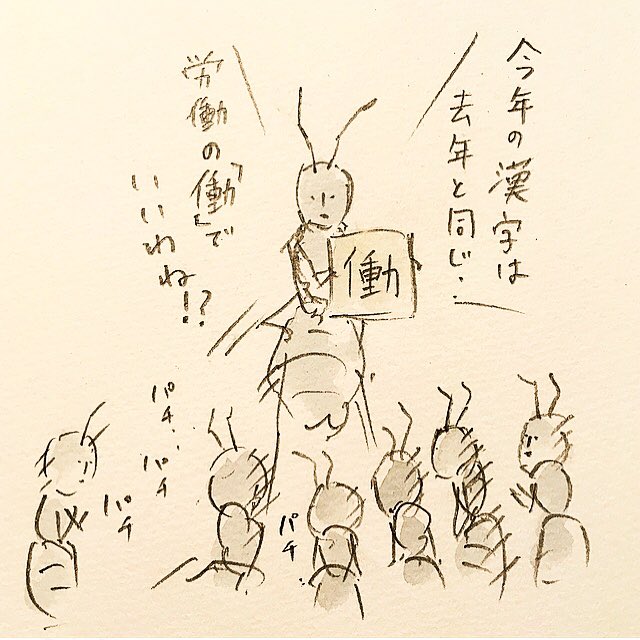 今年の漢字は
去年と同じ・・
働
労働の「働」で
いいわね!?
パチ
パチ
パチ
パチ